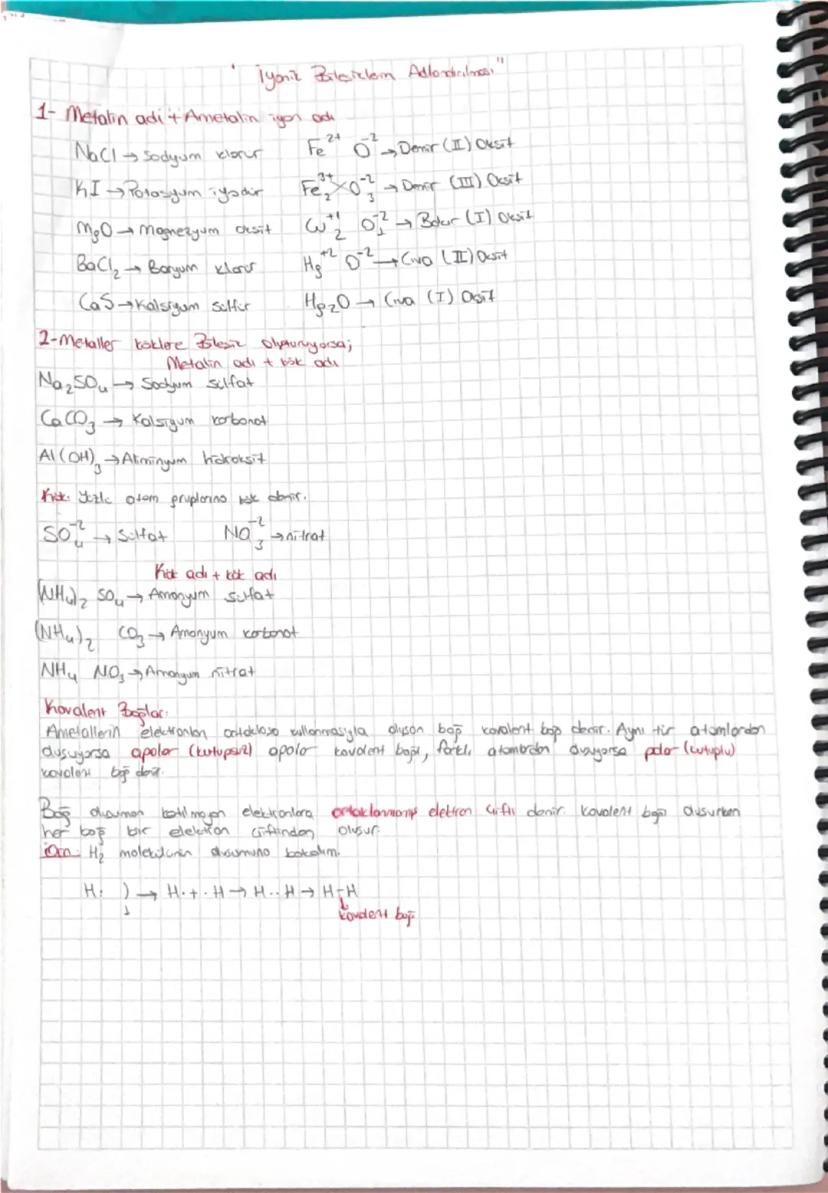 "İyonik Bileşiklerin Adlandırılması"
1- Metalin adı + Ametalin iyon adı
NaCl → Sodyum klorür    Fe²⁺ O⁻² → Demir (II) Oksit
KI → Potasyum iyodür    Fe₂³⁺ O₃⁻² → Demir (III) Oksit
MgO → Magnezyum oksit    Cu₂⁺¹ O₁⁻² → Bakır (I) Oksit
BaCl₂ → Baryum klorür    Hg⁺² O⁻² → Civa (II) Oksit
CaS → Kalsiyum sülfür    Hg₂O → Civa (I) Oksit
2- Metaller köklere Bileşik oluşturuyorsa;
Metalin adı + kök adı
Na₂SO₄ → Sodyum sülfat
CaCO₃ → Kalsiyum karbonat
Al(OH)₃ → Alminyum hidroksit
Kök: Yüklü atom gruplarına kök denir.
SO₄⁻² → Sülfat    NO₃⁻² → nitrat
Kök adı + kök adı
(NH₄)₂ SO₄ → Amonyum sülfat
(NH₄)₂ CO₃ → Amonyum karbonat
NH₄ NO₃ → Amonyum nitrat
Kovalent Bağlar:
Ametallerin elektronları ortaklaşa kullanmasıyla oluşan bağ kovalent bağ denir. Aynı tür atomlardan
oluşuyorsa apolar (kutupsuz) apolar kovalent bağlı, farklı atomlardan oluşuyorsa polar (kutuplu)
kovalent bağ denir.
Bağ oluşumuna katılmayan elektronlara ortaklanmamış elektron çifti denir. Kovalent bağı oluşurken
her bağ bir elektron çiftinden oluşur.
Örn: H₂ molekülünün oluşumuna bakalım.
H: ) → H· + ·H → H··H → H-H
1
kovalent bağ